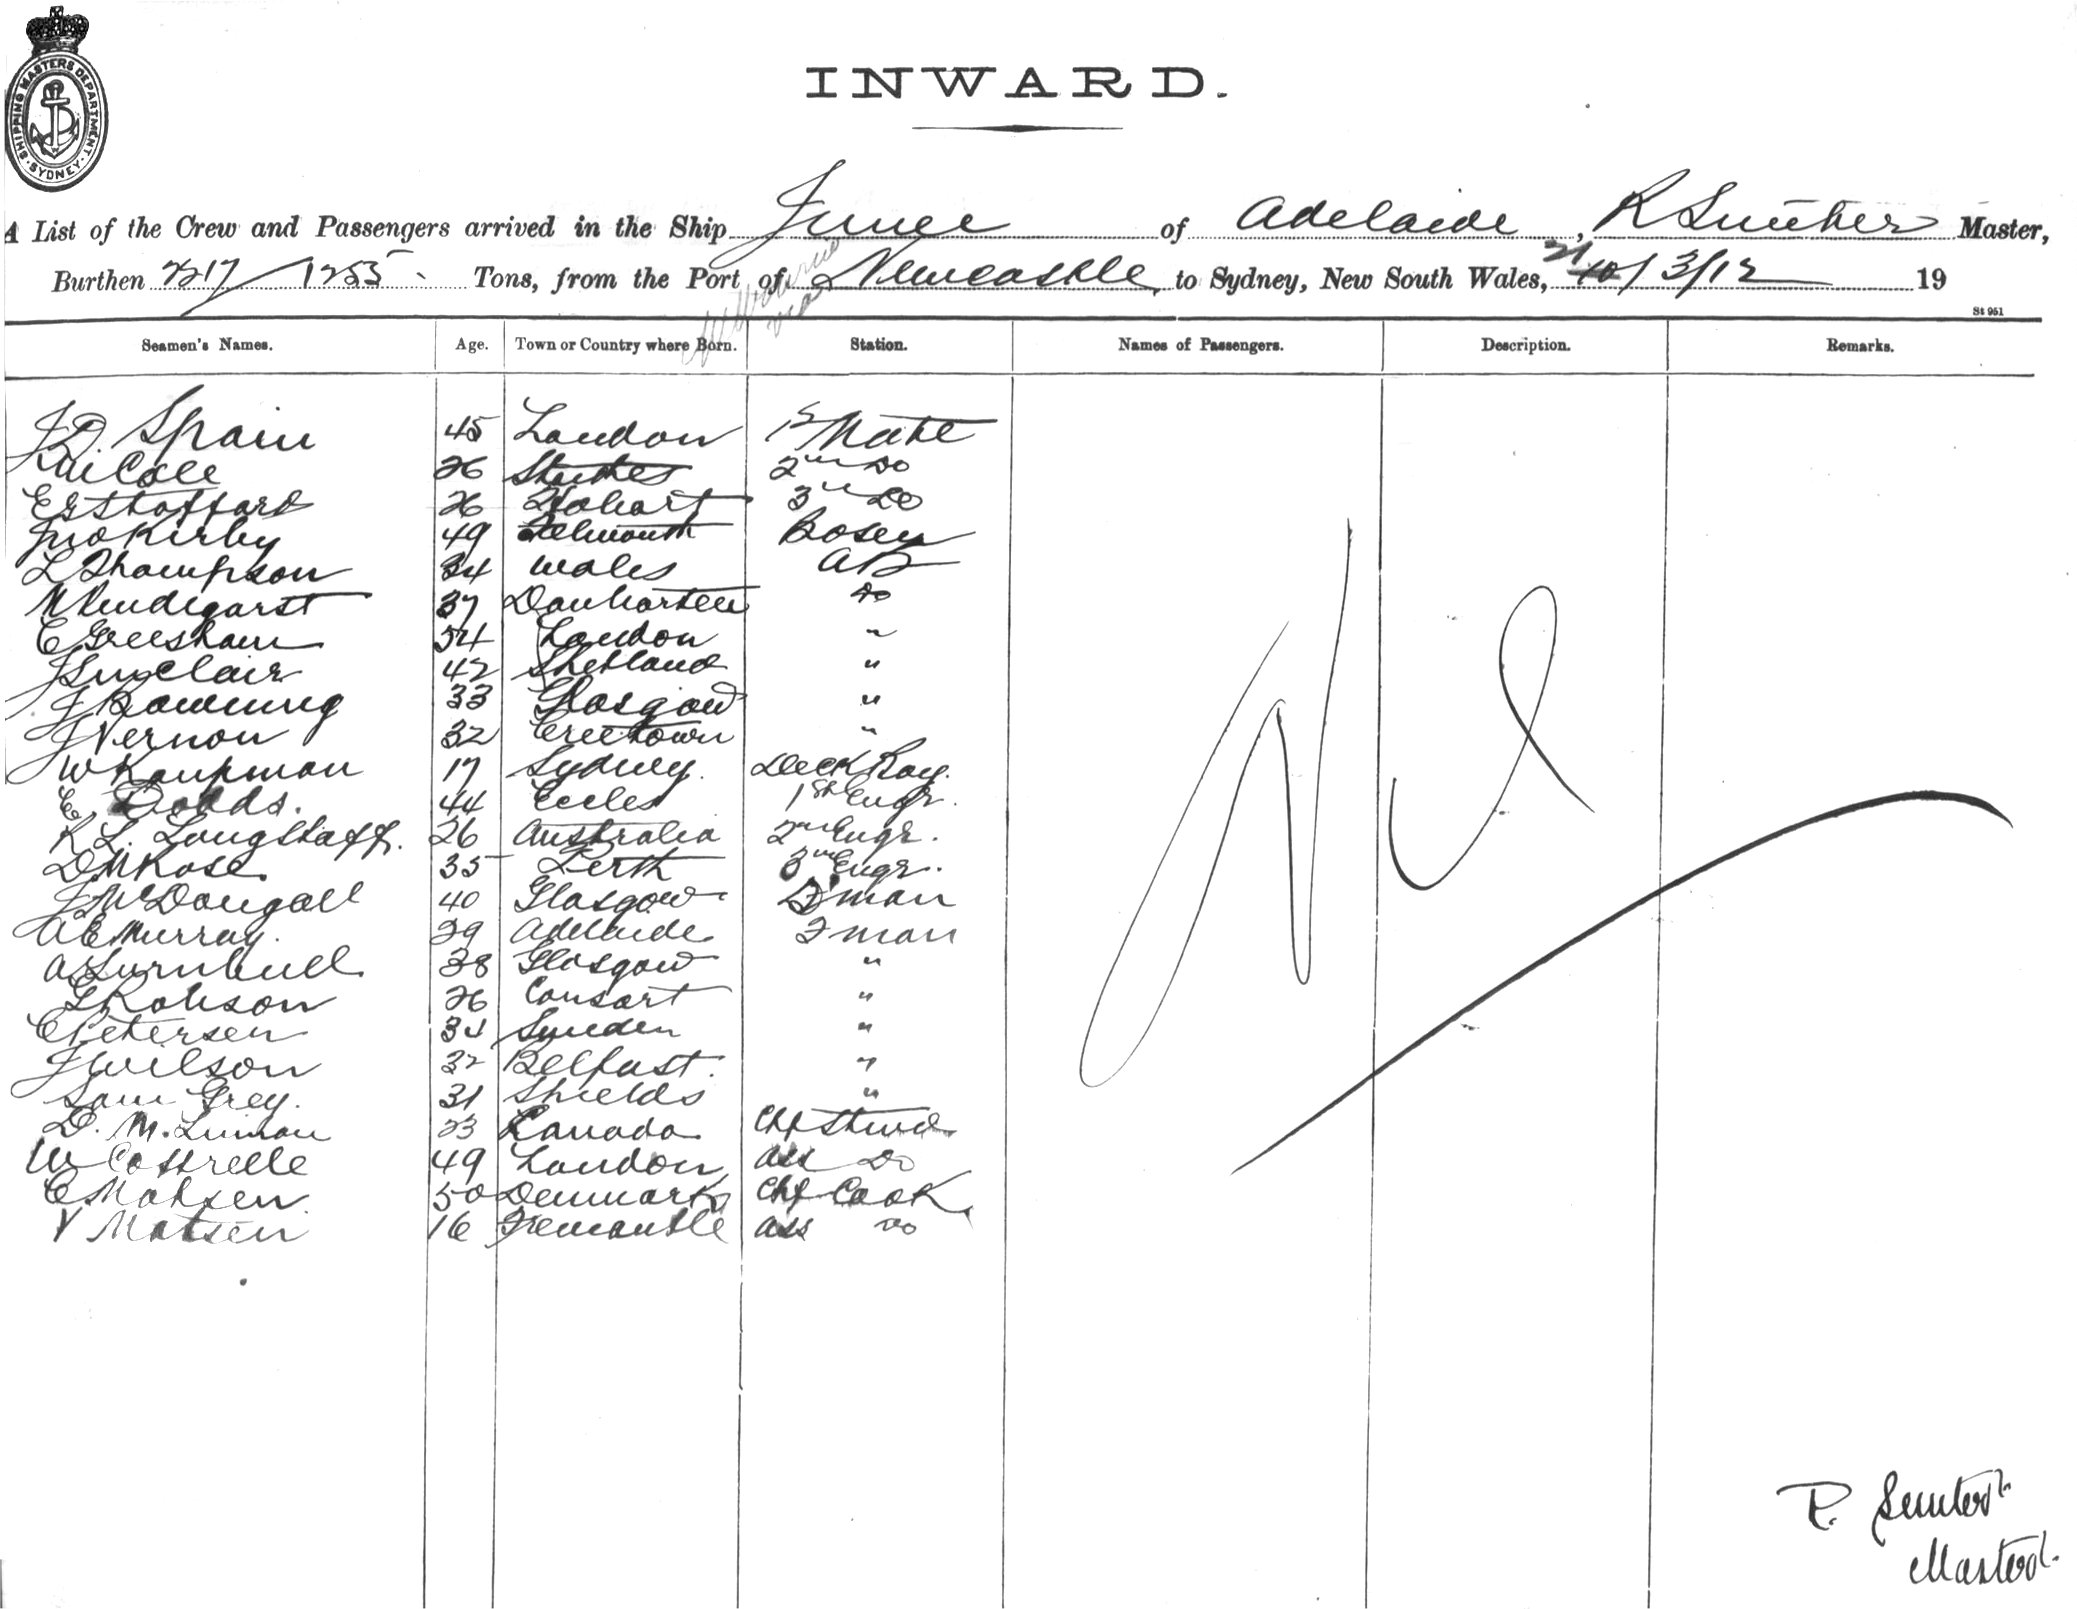 SHIPPING MASTERS DEPARTMENT. SYDNEY
INWARD.
A List of the Crew and Passengers arrived in the Ship Junee of Adelaide, R Master,
Burthen 2217/1255. Tons, from the Port of Newcastle to Sydney, New South Wales, 21/3/12 19
Melbourne via
St 951
Seamen's Names. Age. Town or Country where Born. Station. Names of Passengers. Description. Remarks.
J D. Spain 45 London 1st Mate
Cole 26 2nd Do
E G Stafford 26 Hobart 3rd Do
Jno Kirby 49 Falmouth Bosen
L Thompson 34 Wales AB
37 Do
E Greesham 54 London "
J Sinclair 42 Shetland "
J 33 Glasgow "
J Vernon 32 Creetown "
W Kaufman 17 Sydney. Deck Boy.
E Dodds. 44 Eccles 1st Engr.
R L. Longstaff. 26 Australia 2nd Engr.
D M Rose. 35 Perth 3rd Engr.
J McDougall 40 Glasgow D'man
A E Murray. 29 Adelaide Fman
A Turnbull 38 Glasgow "
G Robson 26 Consart "
C Petersen 34 Sweden "
J Wilson 32 Belfast. "
Sam Grey. 31 Shields "
D. M. 23 Canada Chf Stwd
W Cottrelle 49 London Ass Do
C Matsen 50 Denmark Chf Cook.
V Matsen 16 Fremantle Ass Do
Nil
R.
Master